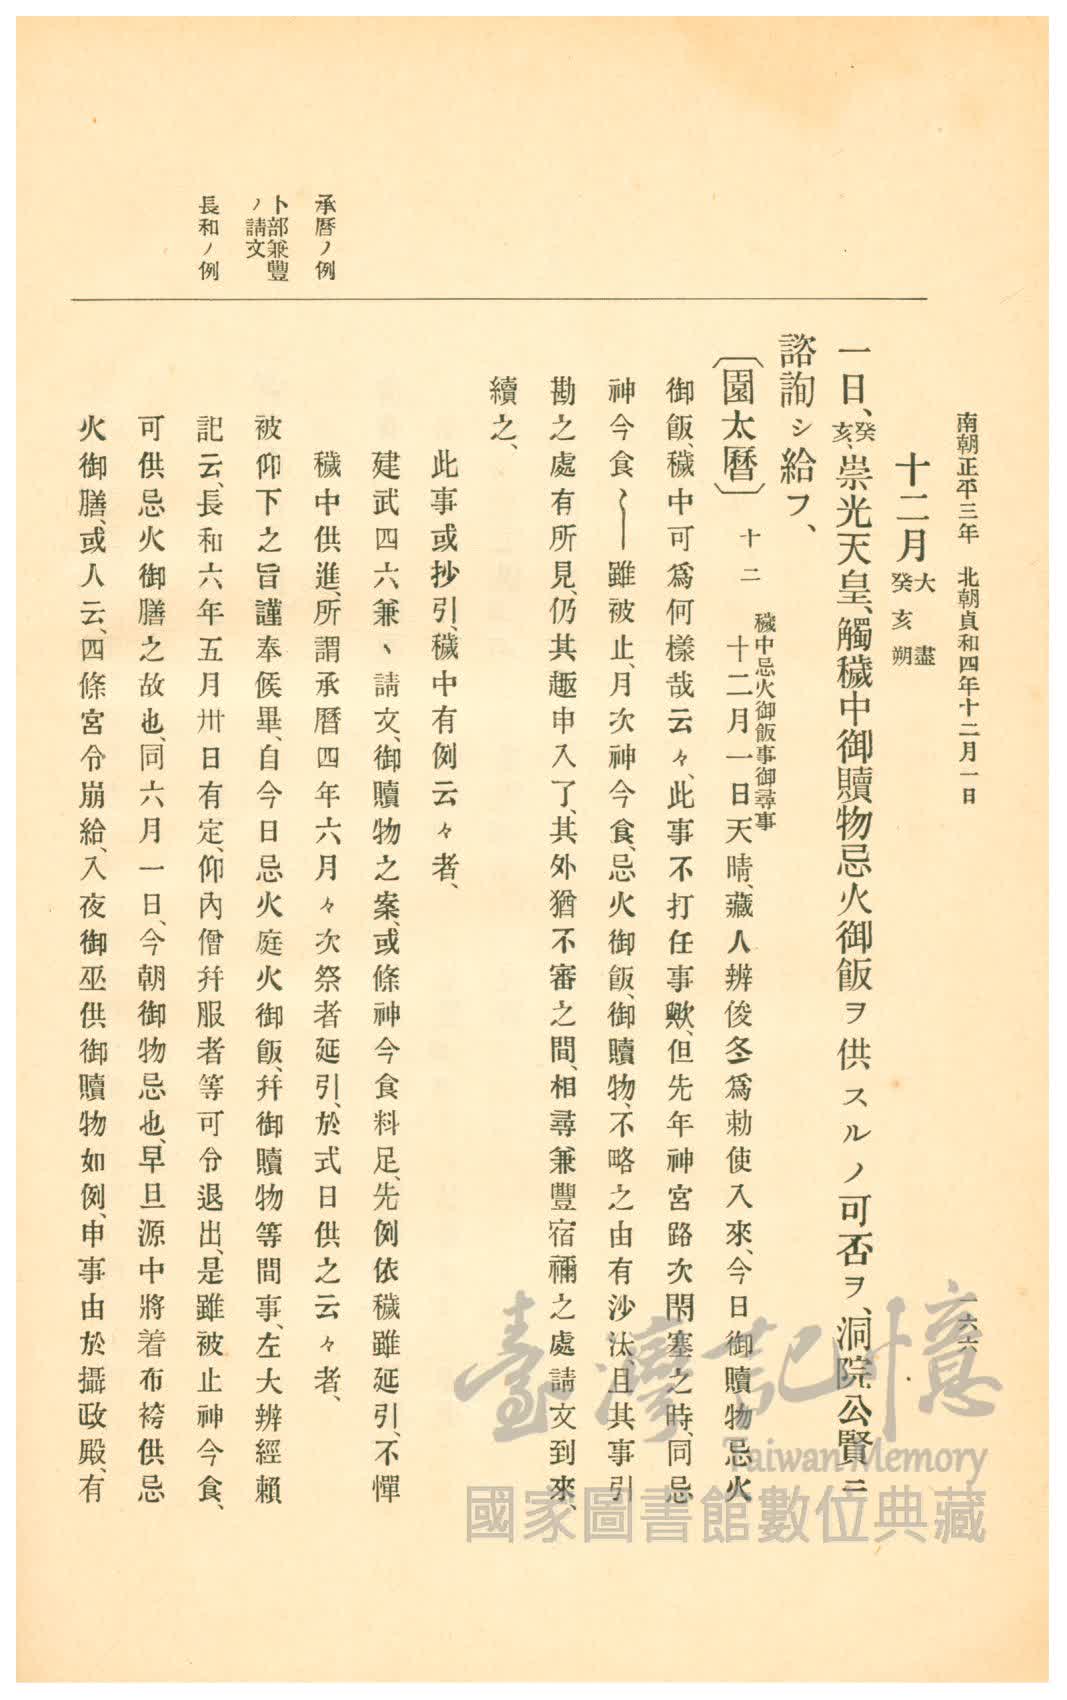 南朝正平三年　北朝貞和四年十二月一日
一六六
十二月大盡
癸亥朔
一日、癸亥、崇光天皇、觸穢中御贖物忌火御飯ヲ供スルノ可否ヲ、洞院公賢ニ
諮詢シ給フ、
〔園太曆〕十二　穢中忌火御飯事御尋事
十二月一日天晴、藏人辨俊冬爲勅使入來、今日御贖物忌火
御飯、穢中可爲何樣哉云々、此事不打任事歟、但先年神宮路次閇塞之時、同忌
神今食〳〵雖被止、月次神今食、忌火御飯、御贖物、不略之由有沙汰、且其事引
勘之處有所見、仍其趣申入了、其外猶不審之間、相尋兼豐宿禰之處請文到來、
續之、
此事或抄引、穢中有例云々者、
建武四六兼〻請文、御贖物之案、或條神今食料足、先例依穢雖延引、不憚
穢中供進、所謂承曆四年六月々次祭者延引、於式日供之云々者、
被仰下之旨謹奉候畢、自今日忌火庭火御飯、幷御贖物等間事、左大辨經賴
記云、長和六年五月卅日有定、仰內僧幷服者等可令退出、是雖被止神今食、
可供忌火御膳之故也、同六月一日、今朝御物忌也、早旦源中將着布袴供忌
火御膳、或人云、四條宮令崩給、入夜御巫供御贖物如例、申事由於攝政殿、有
承曆ノ例
卜部兼豐
ノ請文
長和ノ例
臺灣記憶
Taiwan Memory
國家圖書館數位典藏